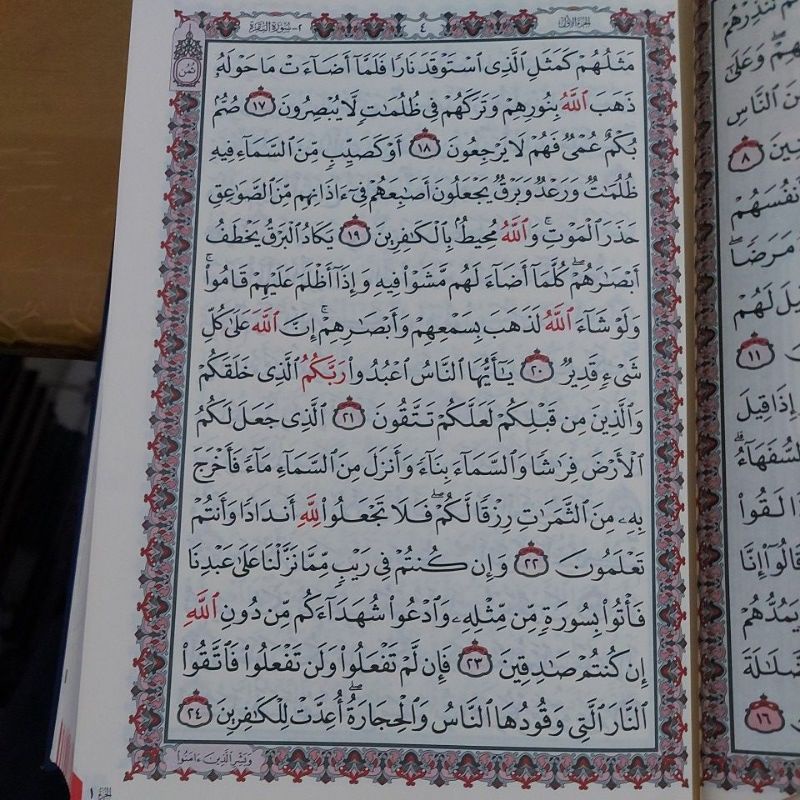 الجزء الأول
٤
٢- سُورَةُ البَقَرَة
ثُمُن
مَثَلُهُمْ كَمَثَلِ ٱلَّذِى ٱسْتَوْقَدَ نَارًا فَلَمَّآ أَضَآءَتْ مَا حَوْلَهُۥ
ذَهَبَ ٱللَّهُ بِنُورِهِمْ وَتَرَكَهُمْ فِى ظُلُمَٰتٍ لَّا يُبْصِرُونَ ١٧ صُمٌّۢ
بُكْمٌ عُمْىٌ فَهُمْ لَا يَرْجِعُونَ ١٨ أَوْ كَصَيِّبٍ مِّنَ ٱلسَّمَآءِ فِيهِ
ظُلُمَٰتٌ وَرَعْدٌ وَبَرْقٌ يَجْعَلُونَ أَصَٰبِعَهُمْ فِىٓ ءَاذَانِهِم مِّنَ ٱلصَّوَٰعِقِ
حَذَرَ ٱلْمَوْتِ ۚ وَٱللَّهُ مُحِيطٌۢ بِٱلْكَٰفِرِينَ ١٩ يَكَادُ ٱلْبَرْقُ يَخْطَفُ
أَبْصَٰرَهُمْ ۖ كُلَّمَآ أَضَآءَ لَهُم مَّشَوْا۟ فِيهِ وَإِذَآ أَظْلَمَ عَلَيْهِمْ قَامُوا۟ ۚ
وَلَوْ شَآءَ ٱللَّهُ لَذَهَبَ بِسَمْعِهِمْ وَأَبْصَٰرِهِمْ ۚ إِنَّ ٱللَّهَ عَلَىٰ كُلِّ
شَىْءٍ قَدِيرٌ ٢٠ يَٰٓأَيُّهَا ٱلنَّاسُ ٱعْبُدُوا۟ رَبَّكُمُ ٱلَّذِى خَلَقَكُمْ
وَٱلَّذِينَ مِن قَبْلِكُمْ لَعَلَّكُمْ تَتَّقُونَ ٢١ ٱلَّذِى جَعَلَ لَكُمُ
ٱلْأَرْضَ فِرَٰشًا وَٱلسَّمَآءَ بِنَآءً وَأَنزَلَ مِنَ ٱلسَّمَآءِ مَآءً فَأَخْرَجَ
بِهِۦ مِنَ ٱلثَّمَرَٰتِ رِزْقًا لَّكُمْ ۖ فَلَا تَجْعَلُوا۟ لِلَّهِ أَندَادًا وَأَنتُمْ
تَعْلَمُونَ ٢٢ وَإِن كُنتُمْ فِى رَيْبٍ مِّمَّا نَزَّلْنَا عَلَىٰ عَبْدِنَا
فَأْتُوا۟ بِسُورَةٍ مِّن مِّثْلِهِۦ وَٱدْعُوا۟ شُهَدَآءَكُم مِّن دُونِ ٱللَّهِ
إِن كُنتُمْ صَٰدِقِينَ ٢٣ فَإِن لَّمْ تَفْعَلُوا۟ وَلَن تَفْعَلُوا۟ فَٱتَّقُوا۟
ٱلنَّارَ ٱلَّتِى وَقُودُهَا ٱلنَّاسُ وَٱلْحِجَارَةُ ۖ أُعِدَّتْ لِلْكَٰفِرِينَ ٢٤
وَبَشِّرِ ٱلَّذِينَ ءَامَنُوا۟
الجزء ١
وَعَلَىٰ
ٱلنَّاسِ
٨
أَنفُسَهُمْ
مَرَضًا ۖ
قِيلَ لَهُمْ
١١
إِذَا قِيلَ
ٱلسُّفَهَآءُ ۗ
لَقُوا۟
قَالُوٓا۟ إِنَّا
يَمُدُّهُمْ
١٦